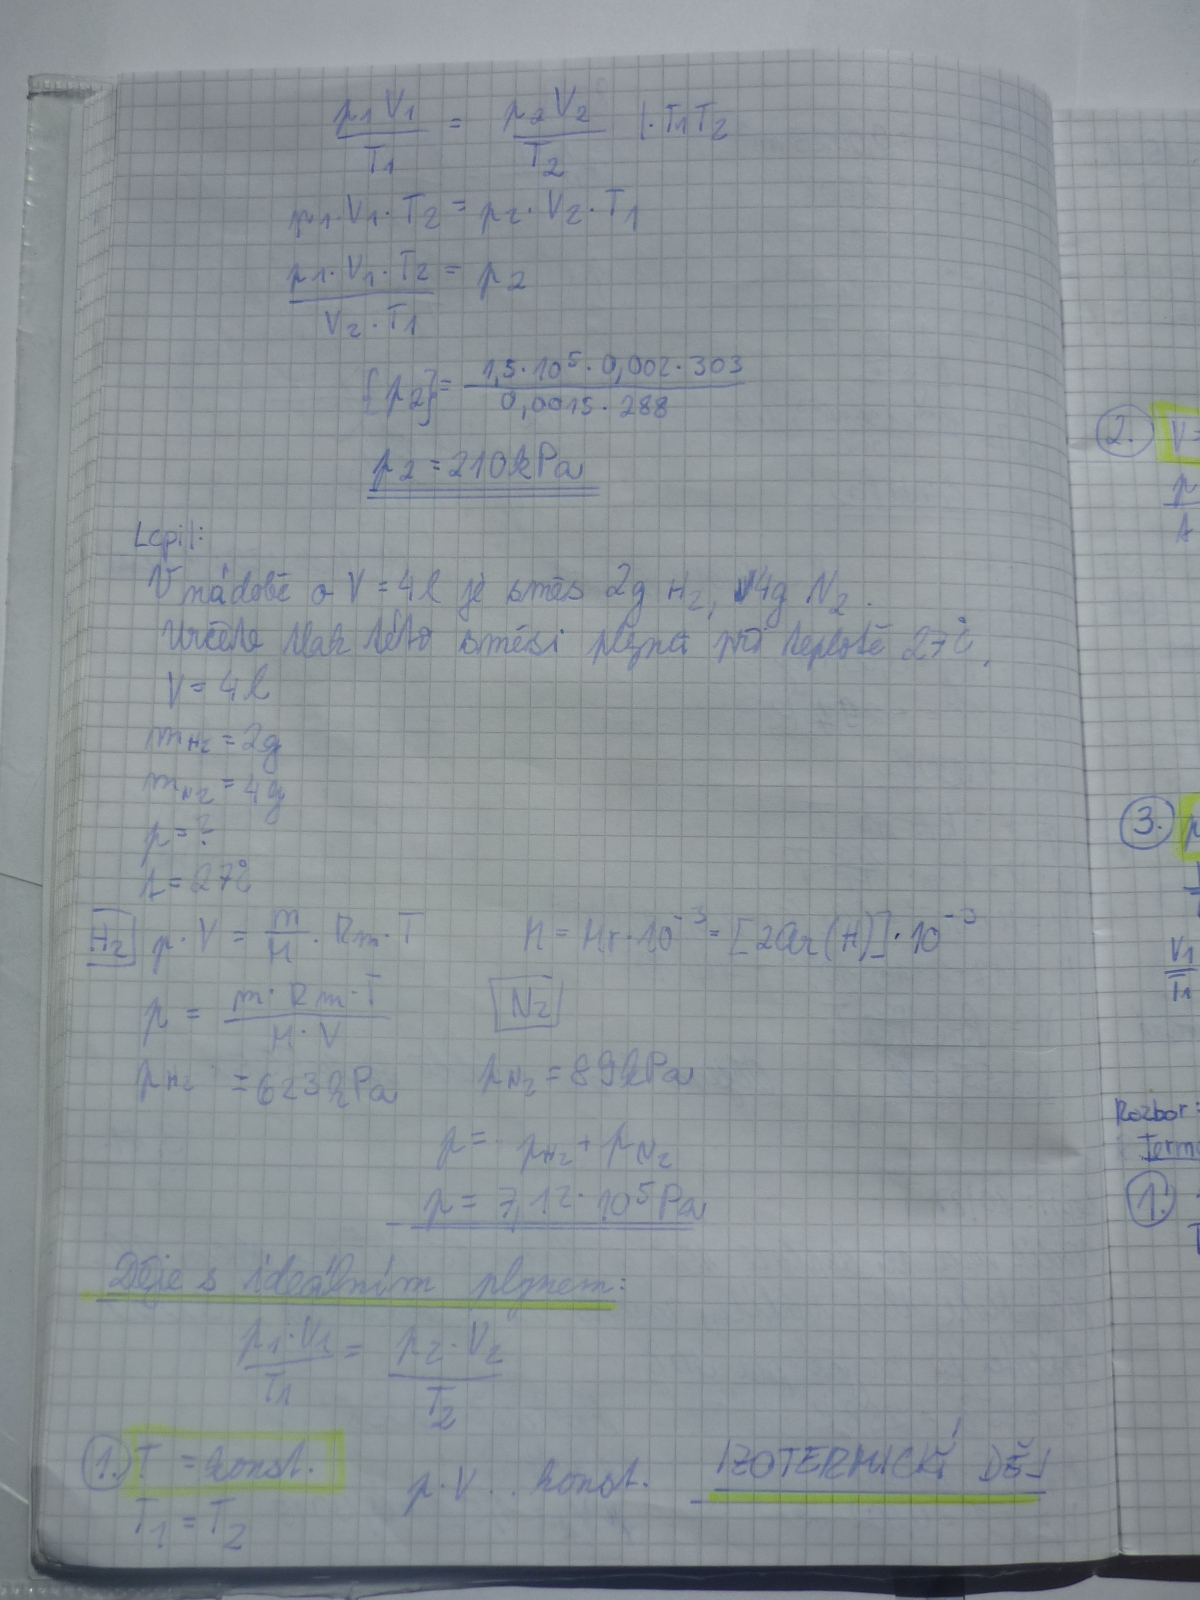 p₁V₁/T₁ = p₂V₂/T₂ |·T₁T₂
p₁·V₁·T₂ = p₂·V₂·T₁
p₁·V₁·T₂/V₂·T₁ = p₂
{p₂} = 1,5·10⁵·0,002·303/0,0015·288
p₂ = 210kPa
Lcpil:
V nádobě o V = 4l je směs 2g H₂, 4g N₂.
Určete tlak této směsi plynů při teplotě 27°C.
V = 4l
m H₂ = 2g
m N₂ = 4g
p = ?
t = 27°C
H₂ p·V = m/M · Rm·T M = Mr·10⁻³ = [2Ar(H)]·10⁻³
p = m·Rm·T/M·V N₂
p H₂ = 623kPa p N₂ = 89kPa
p = p H₂ + p N₂
p = 7,12·10⁵Pa
Děje s ideálním plynem:
p₁·V₁/T₁ = p₂·V₂/T₂
1. T = konst. p·V .. konst. IZOTERMICKÝ DĚJ
T₁ = T₂
2. V =
p
3. p
V₁
T₁
Rozbor:
Term
1.